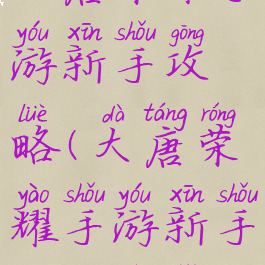 yóu xīn shǒu gōng
游新手攻
lüè dà táng róng
略(大唐荣
yào shǒu yóu xīn shǒu
耀手游新手